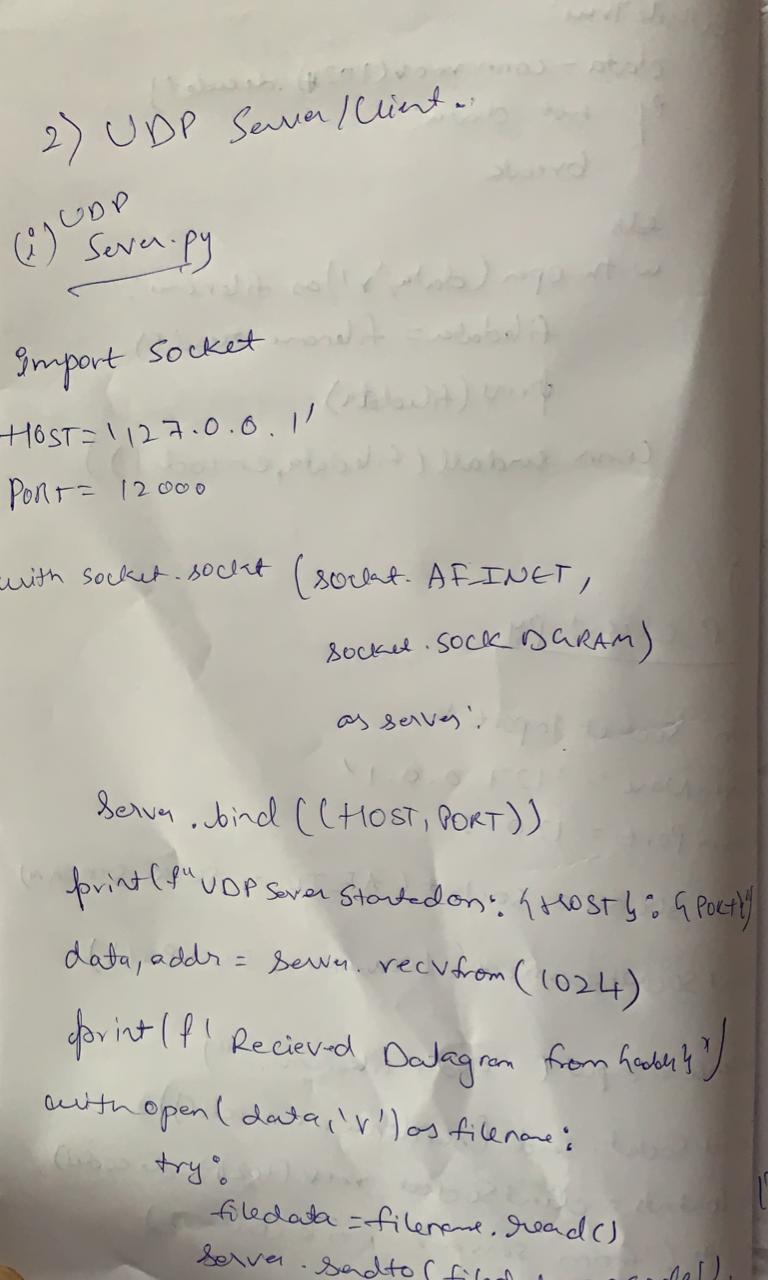 2) UDP Server/Client..
(i) UDP
Server.py
import socket
HOST='127.0.0.1'
PORT= 12000
with socket.socket (socket. AF_INET,
socket.SOCK_DGRAM)
as server:
Server.bind((HOST, PORT))
print(f"UDP Server Started on: {HOST}:{PORT}")
data, addr = server.recvfrom(1024)
print(f' Recieved Datagram from {addr}')
with open( data,'r') as filename:
try:
filedata = filename.read()
server.sendto(